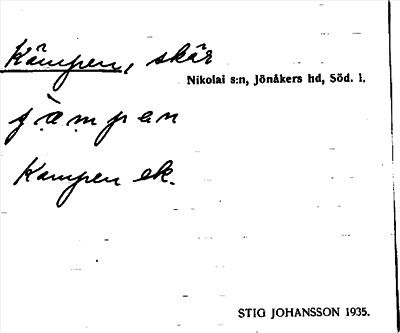 Kämpen, skär
Nikolai s:n, Jönåkers hd, Söd. l.
Kampen ek.
STIG JOHANSSON 1935.